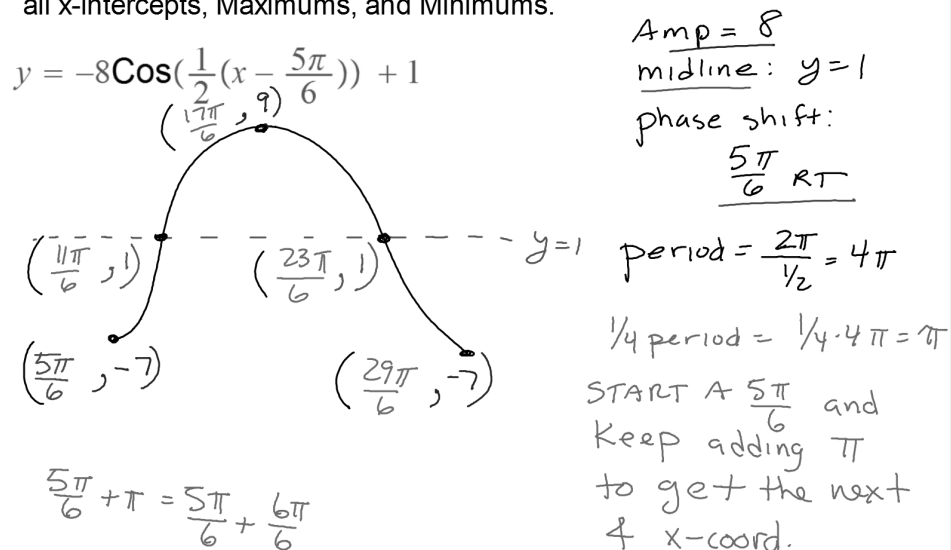 all x-intercepts, Maximums, and Minimums.
y = -8Cos(1/2(x - 5π/6)) + 1
(17π/6, 9)
(11π/6, 1)
(23π/6, 1)
y=1
(5π/6, -7)
(29π/6, -7)
5π/6 + π = 5π/6 + 6π/6
Amp = 8
midline: y=1
phase shift:
5π/6 RT
period = 2π/½ = 4π
1/4 period = 1/4·4π = π
START A 5π/6 and
Keep adding π
to get the next
4 x-coord.